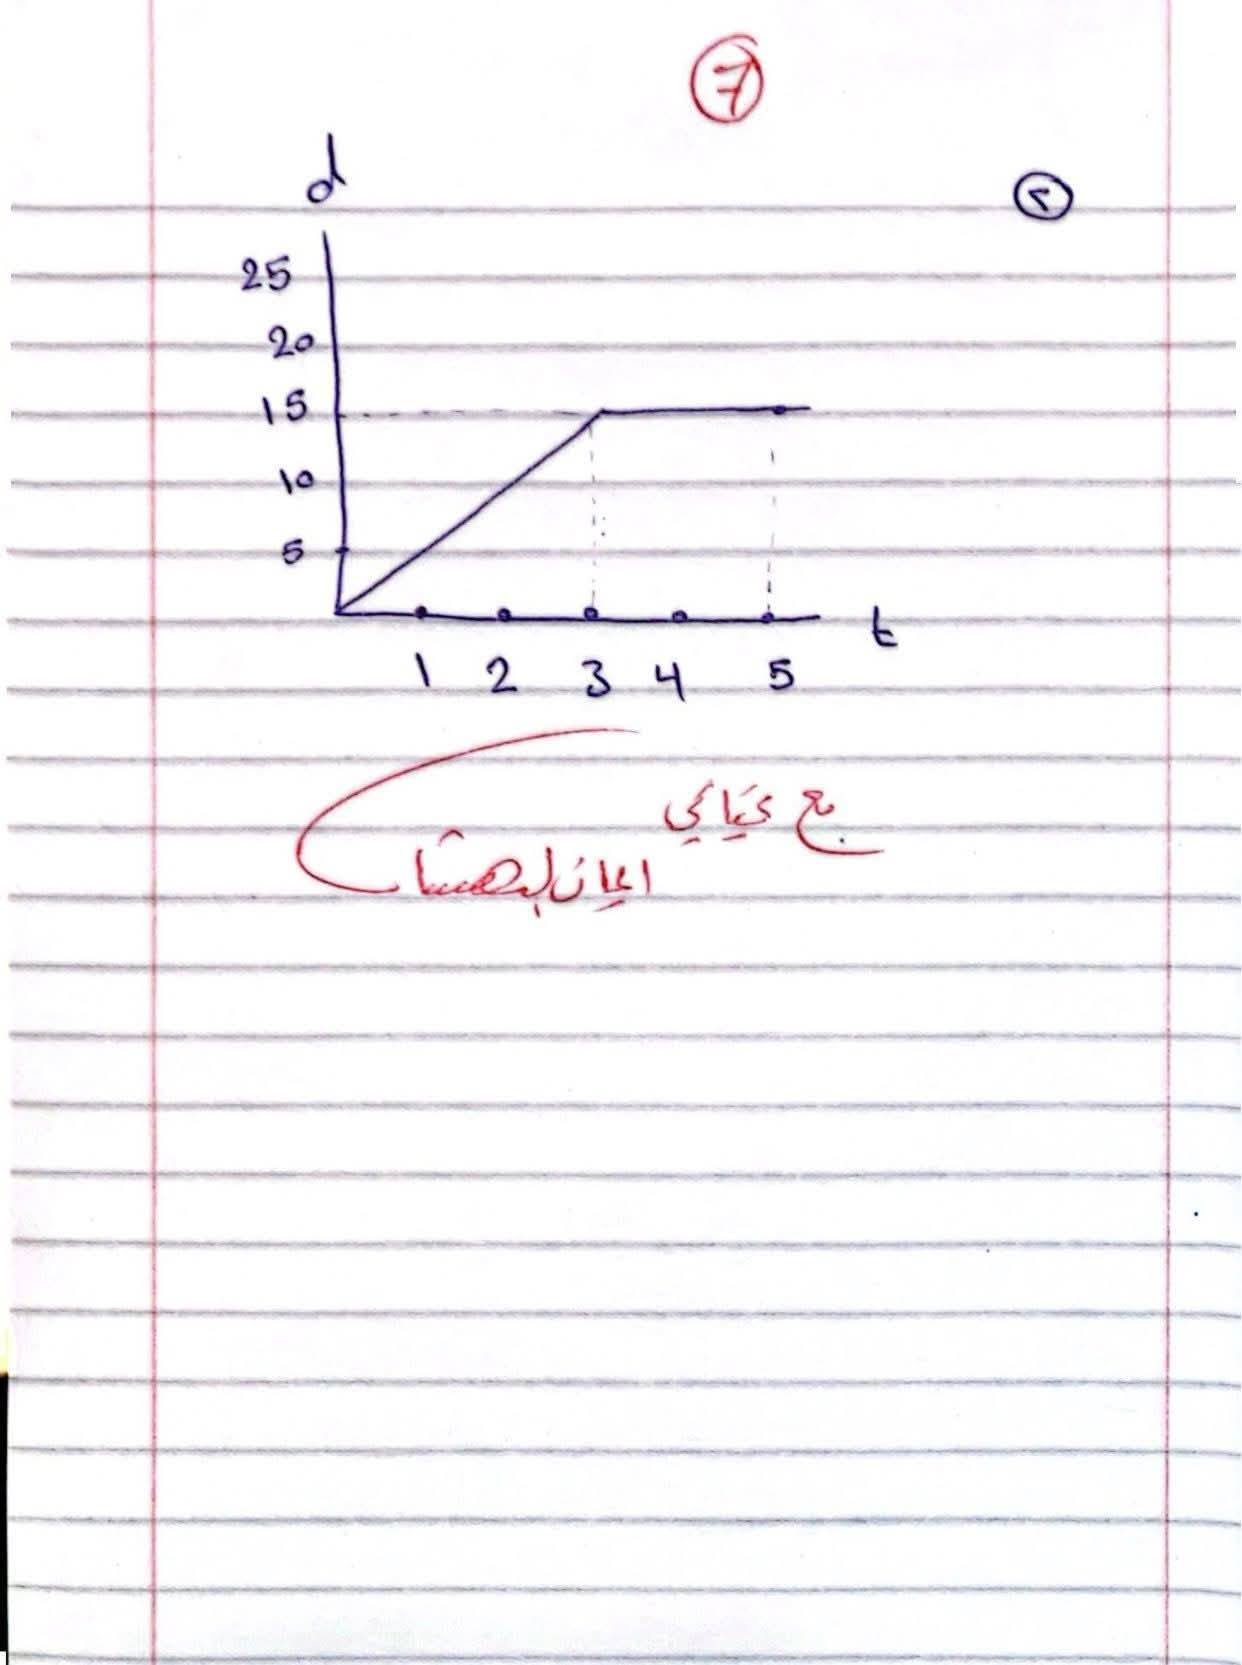 7
d
٢
25
20
15
10
5
t
1 2 3 4 5
مع تحياتي